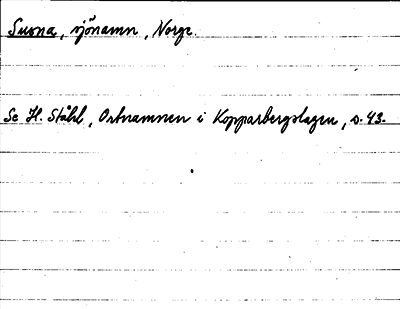 Suona, sjönamn, Norge.
Se H. Ståhl, Ortnamnen i Kopparbergslagen, s. 43.